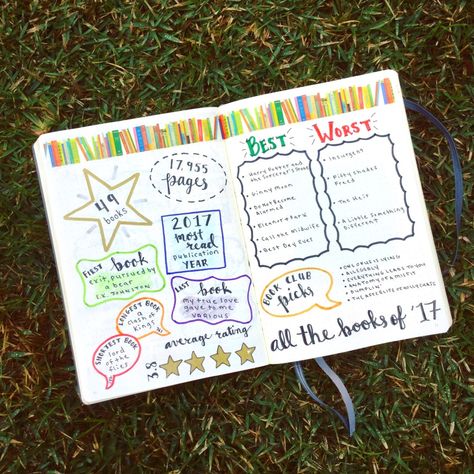 49
books
17,955
pages
2017
most
read
publication
YEAR
FIRST book
exit, pursued by
a bear
E.K. JOHNSTON
LAST book
my true love
gave to me
various
LONGEST BOOK
a clash of
kings
SHORTEST BOOK
lord
of the
flies
average rating
3.8
BEST
Harry Potter and
the Sorcerer's Stone
Ginny Moon
Don't Become
Alarmed
Eleanor & Park
Call the Midwife
Best Day Ever
WORST
Insurgent
Fifty Shades
Freed
The Heir
A Little Something
Different
BOOK CLUB
picks
ALLEGEDLY
EVERYTHING LEADS TO YOU
ANATOMY OF A MISFIT
DUMPLIN'
all the books of '17